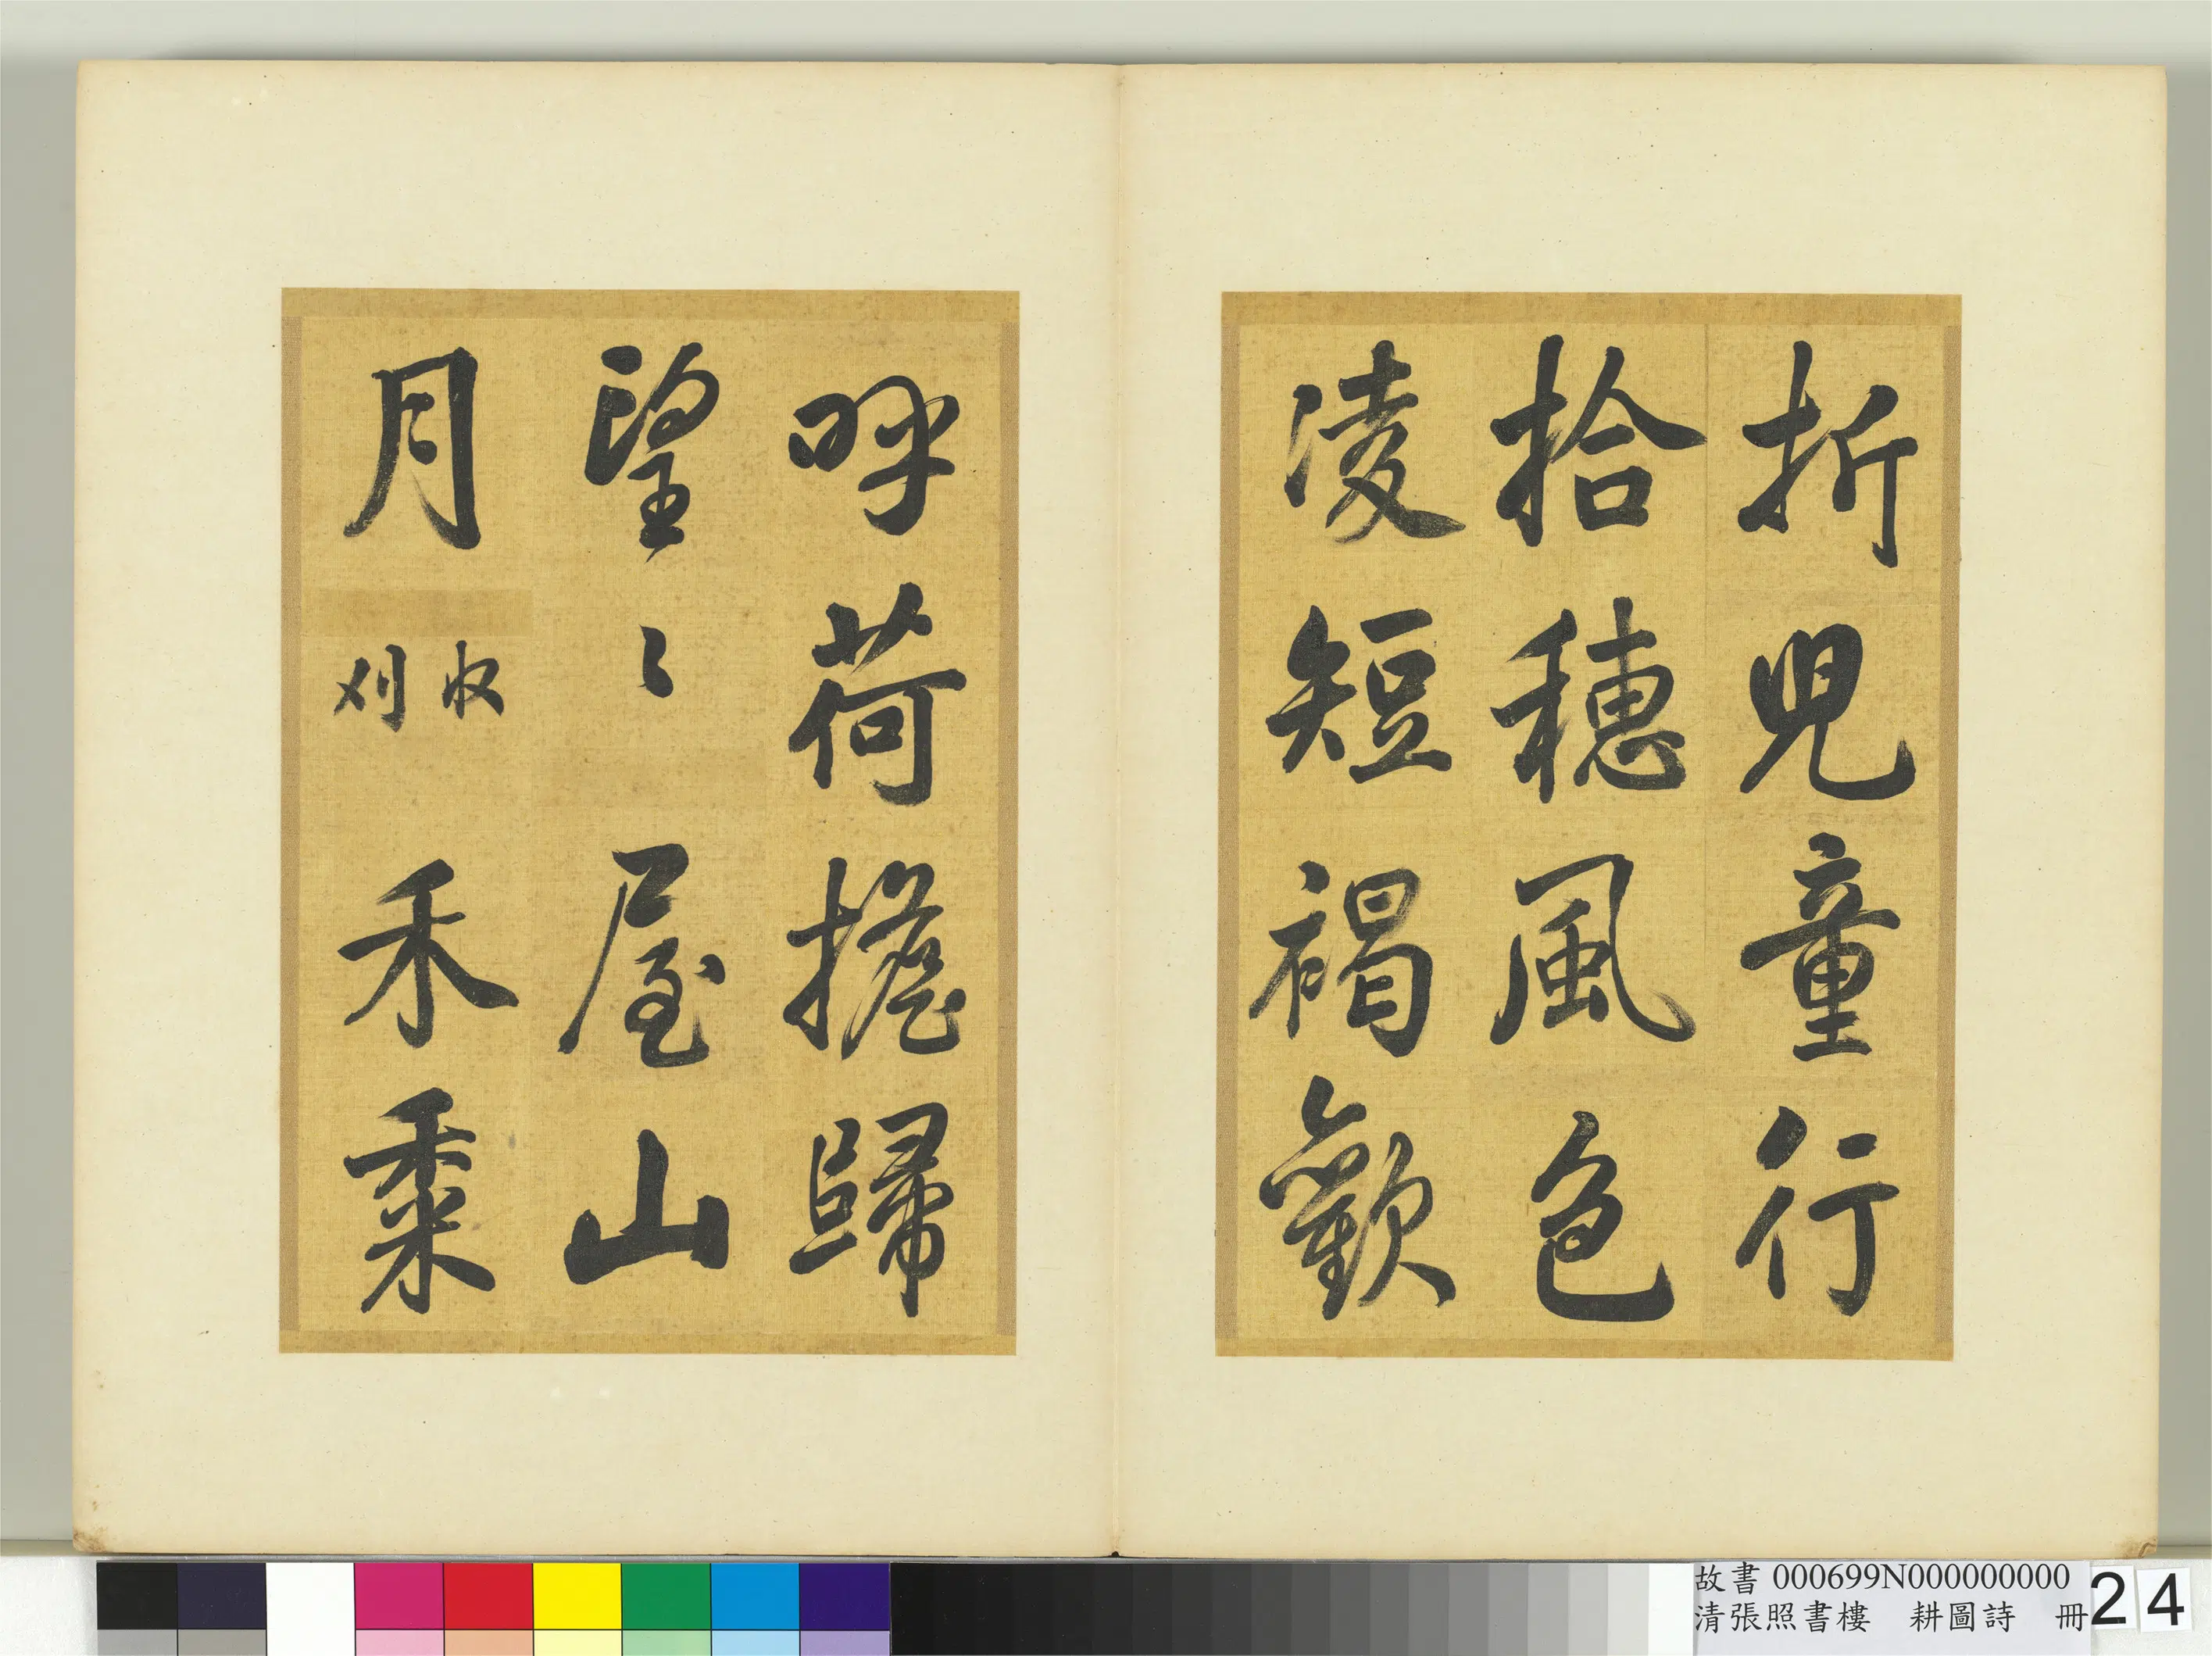 折兒童行
拾穗風色
凌短褐歡
呼荷擔歸
望〻屋山
月 收刈 禾黍
故書 000699N000000000
清張照書樓　耕圖詩　冊
24